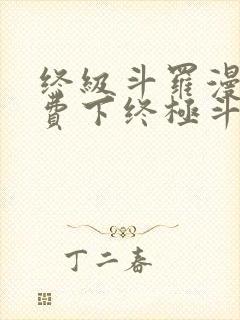 终级斗罗漫
费下终极斗
丁二春